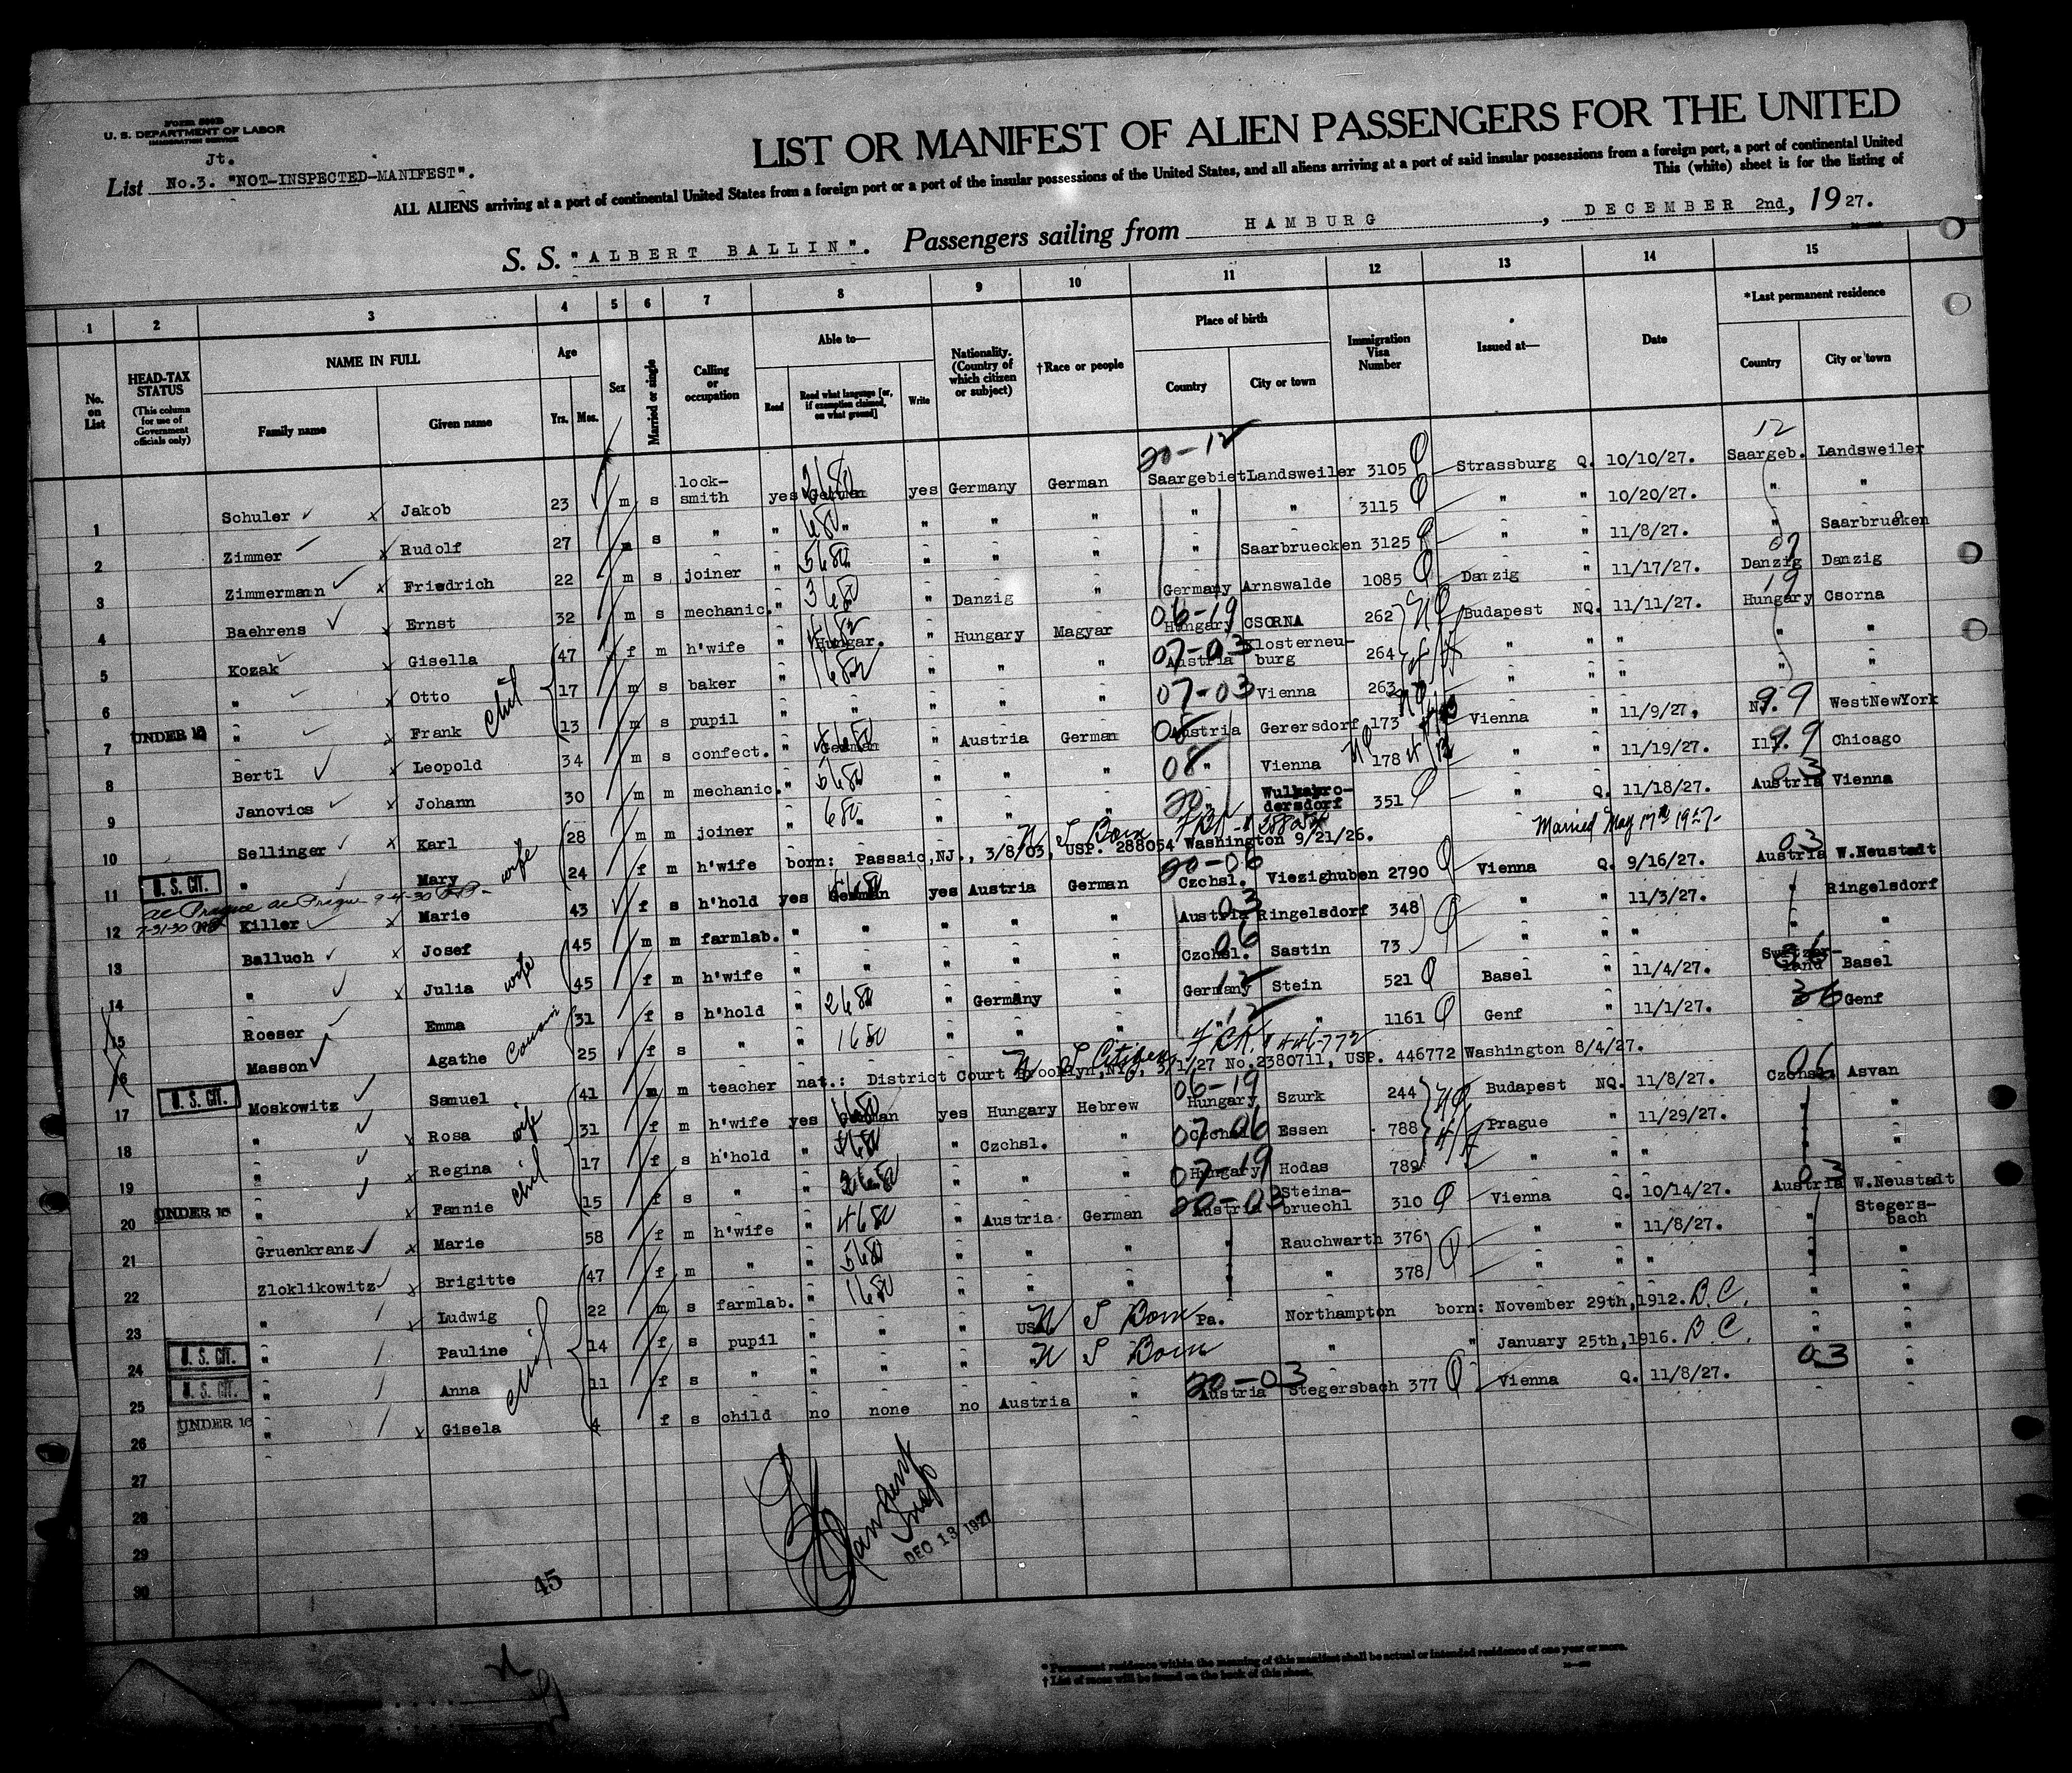 Form 500B
U. S. DEPARTMENT OF LABOR
IMMIGRATION SERVICE
Jt.
List No.3. "NOT-INSPECTED-MANIFEST".
LIST OR MANIFEST OF ALIEN PASSENGERS FOR THE UNITED
ALL ALIENS arriving at a port of continental United States from a foreign port or a port of the insular possessions of the United States, and all aliens arriving at a port of said insular possessions from a foreign port, a port of continental United
This (white) sheet is for the listing of
S. S. "ALBERT BALLIN". Passengers sailing from HAMBURG, DECEMBER 2nd, 1927.
1 2 3 4 5 6 7 8 9 10 11 12 13 14 15
No. on List
HEAD-TAX STATUS (This column for use of Government officials only)
NAME IN FULL Family name Given name
Age Yrs. Mos.
Sex
Married or single
Calling or occupation
Able to— Read Read what language [or, if exemption claimed, on what ground] Write
Nationality. (Country of which citizen or subject)
†Race or people
Place of birth Country City or town
Immigration Visa Number
Issued at—
Date
*Last permanent residence Country City or town
20-12 12
1 Schuler Jakob 23 m s lock-smith yes German yes Germany German Saargebiet Landsweiler 3105 Strassburg Q. 10/10/27. Saargeb. Landsweiler
2 Zimmer Rudolf 27 m s " " " " " " " " 3115 " " 10/20/27. " "
3 Zimmermann Friedrich 22 m s joiner " " " " " " Saarbruecken 3125 " " 11/8/27. " Saarbruecken
4 Baehrens Ernst 32 m s mechanic. " " " Danzig " Germany Arnswalde 1085 Danzig " 11/17/27. Danzig Danzig
5 Kozak Gisella 47 f m h'wife " Hungar. " Hungary Magyar Hungary CSORNA 262 Budapest NQ. 11/11/27. Hungary Csorna
6 " Otto 17 m s baker " " " " " Austria Klosterneu-burg 264 " " " " "
7 UNDER 16 " Frank chil 13 m s pupil " " " " " 07-03 Vienna 263 " " " " "
8 Bertl Leopold 34 m s confect. " German " Austria German Austria Gerersdorf 173 Vienna " 11/9/27. N.J. WestNewYork
9 Janovics Johann 30 m m mechanic. " " " " " " Vienna 178 " " 11/19/27. Ill. Chicago
10 Sellinger Karl 28 m m joiner " " " " " " Wulkapro-dersdorf 351 " Q. 11/18/27. Austria Vienna
11 U. S. CIT. " Mary wife 24 f m h'wife born: Passaic,NJ., 3/8/03, USP. 288054 Washington 9/21/26. Married May 17th 1927
12 Killer Marie 43 f s h'hold yes German yes Austria German Czchsl. Viezighuben 2790 Vienna Q. 9/16/27. Austria W.Neustadt
13 Balluch Josef 45 m m farmlab. " " " " " Austria Ringelsdorf 348 " " 11/3/27. " Ringelsdorf
14 " Julia wife 45 f m h'wife " " " " " Czchsl. Sastin 73 " " " " "
15 Roeser Emma 31 f s h'hold " " " Germany " Germany Stein 521 Basel " 11/4/27. Switzer-land Basel
16 Masson Agathe Cousin 25 f s " " " " " " " " 1161 Genf " 11/1/27. " Genf
17 U. S. CIT. Moskowitz Samuel 41 m m teacher nat.: District Court Brooklyn,NY., 3/1/27 No.2380711, USP. 446772 Washington 8/4/27.
18 " Rosa wife 31 f m h'wife yes German yes Hungary Hebrew Hungary Szurk 244 Budapest NQ. 11/8/27. Czchsl. Asvan
19 " Regina 17 f s h'hold " " " Czchsl. " Czchsl. Essen 788 Prague " 11/29/27. " "
20 UNDER 16 " Fannie chil 15 f s " " " " " " Hungary Hodas 789 " " " " "
21 Gruenkranz Marie 58 f m h'wife " " " Austria German Austria Steina-bruechl 310 Vienna Q. 10/14/27. Austria W.Neustadt
22 Zloklikowitz Brigitte 47 f m " " " " " " " Rauchwarth 376 " " 11/8/27. " Stegers-bach
23 " Ludwig 22 m s farmlab. " " " " " " " 378 " " " " "
24 U. S. CIT. " Pauline 14 f s pupil " " " USA. U S Born Pa. Northampton born: November 29th,1912. B.C. "
25 U. S. CIT. " Anna chil 11 f s " " " " " U S Born " " January 25th,1916. B.C. "
26 UNDER 16 " Gisela 4 f s child no none no Austria " Austria Stegersbach 377 Vienna Q. 11/8/27. 03 "
27
28
29
30
Insp
DEC 13 1927
45
* Permanent residence within the meaning of this manifest shall be actual or intended residence of one year or more.
† List of races will be found on the back of this sheet.